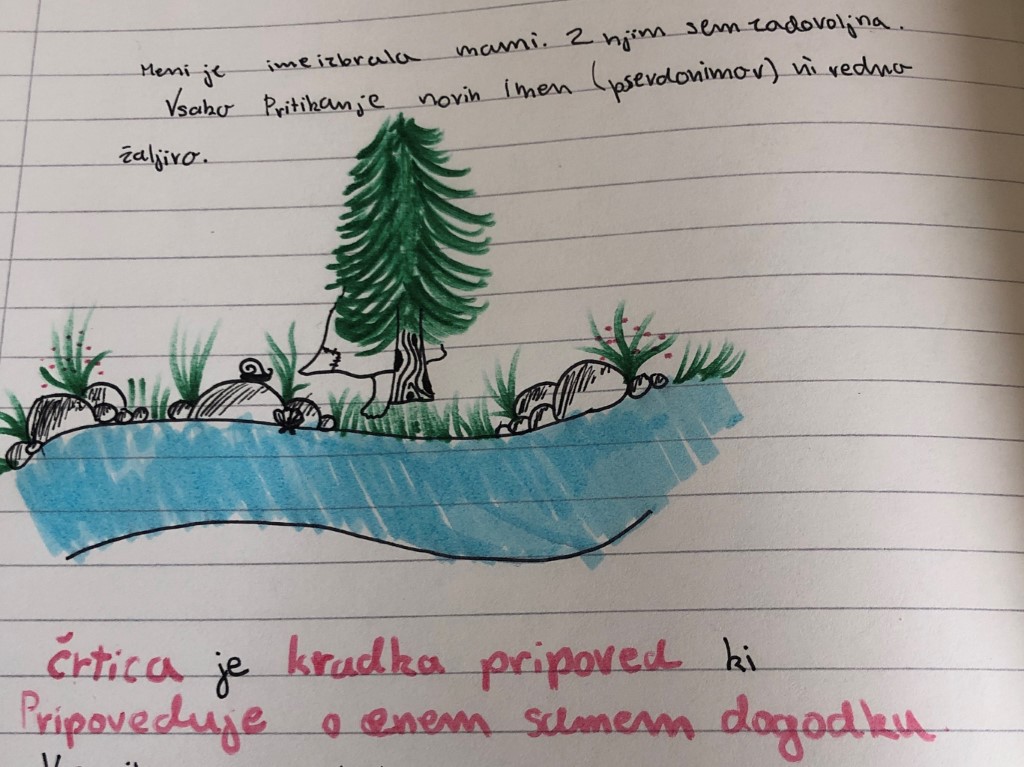 Meni je ime izbrala mami. Z njim sem zadovoljna.
Vsako Pritikanje novih imen (psevdonimov) ni vedno
žaljivo.
črtica je kradka pripoved ki
Pripoveduje o enem samem dogodku